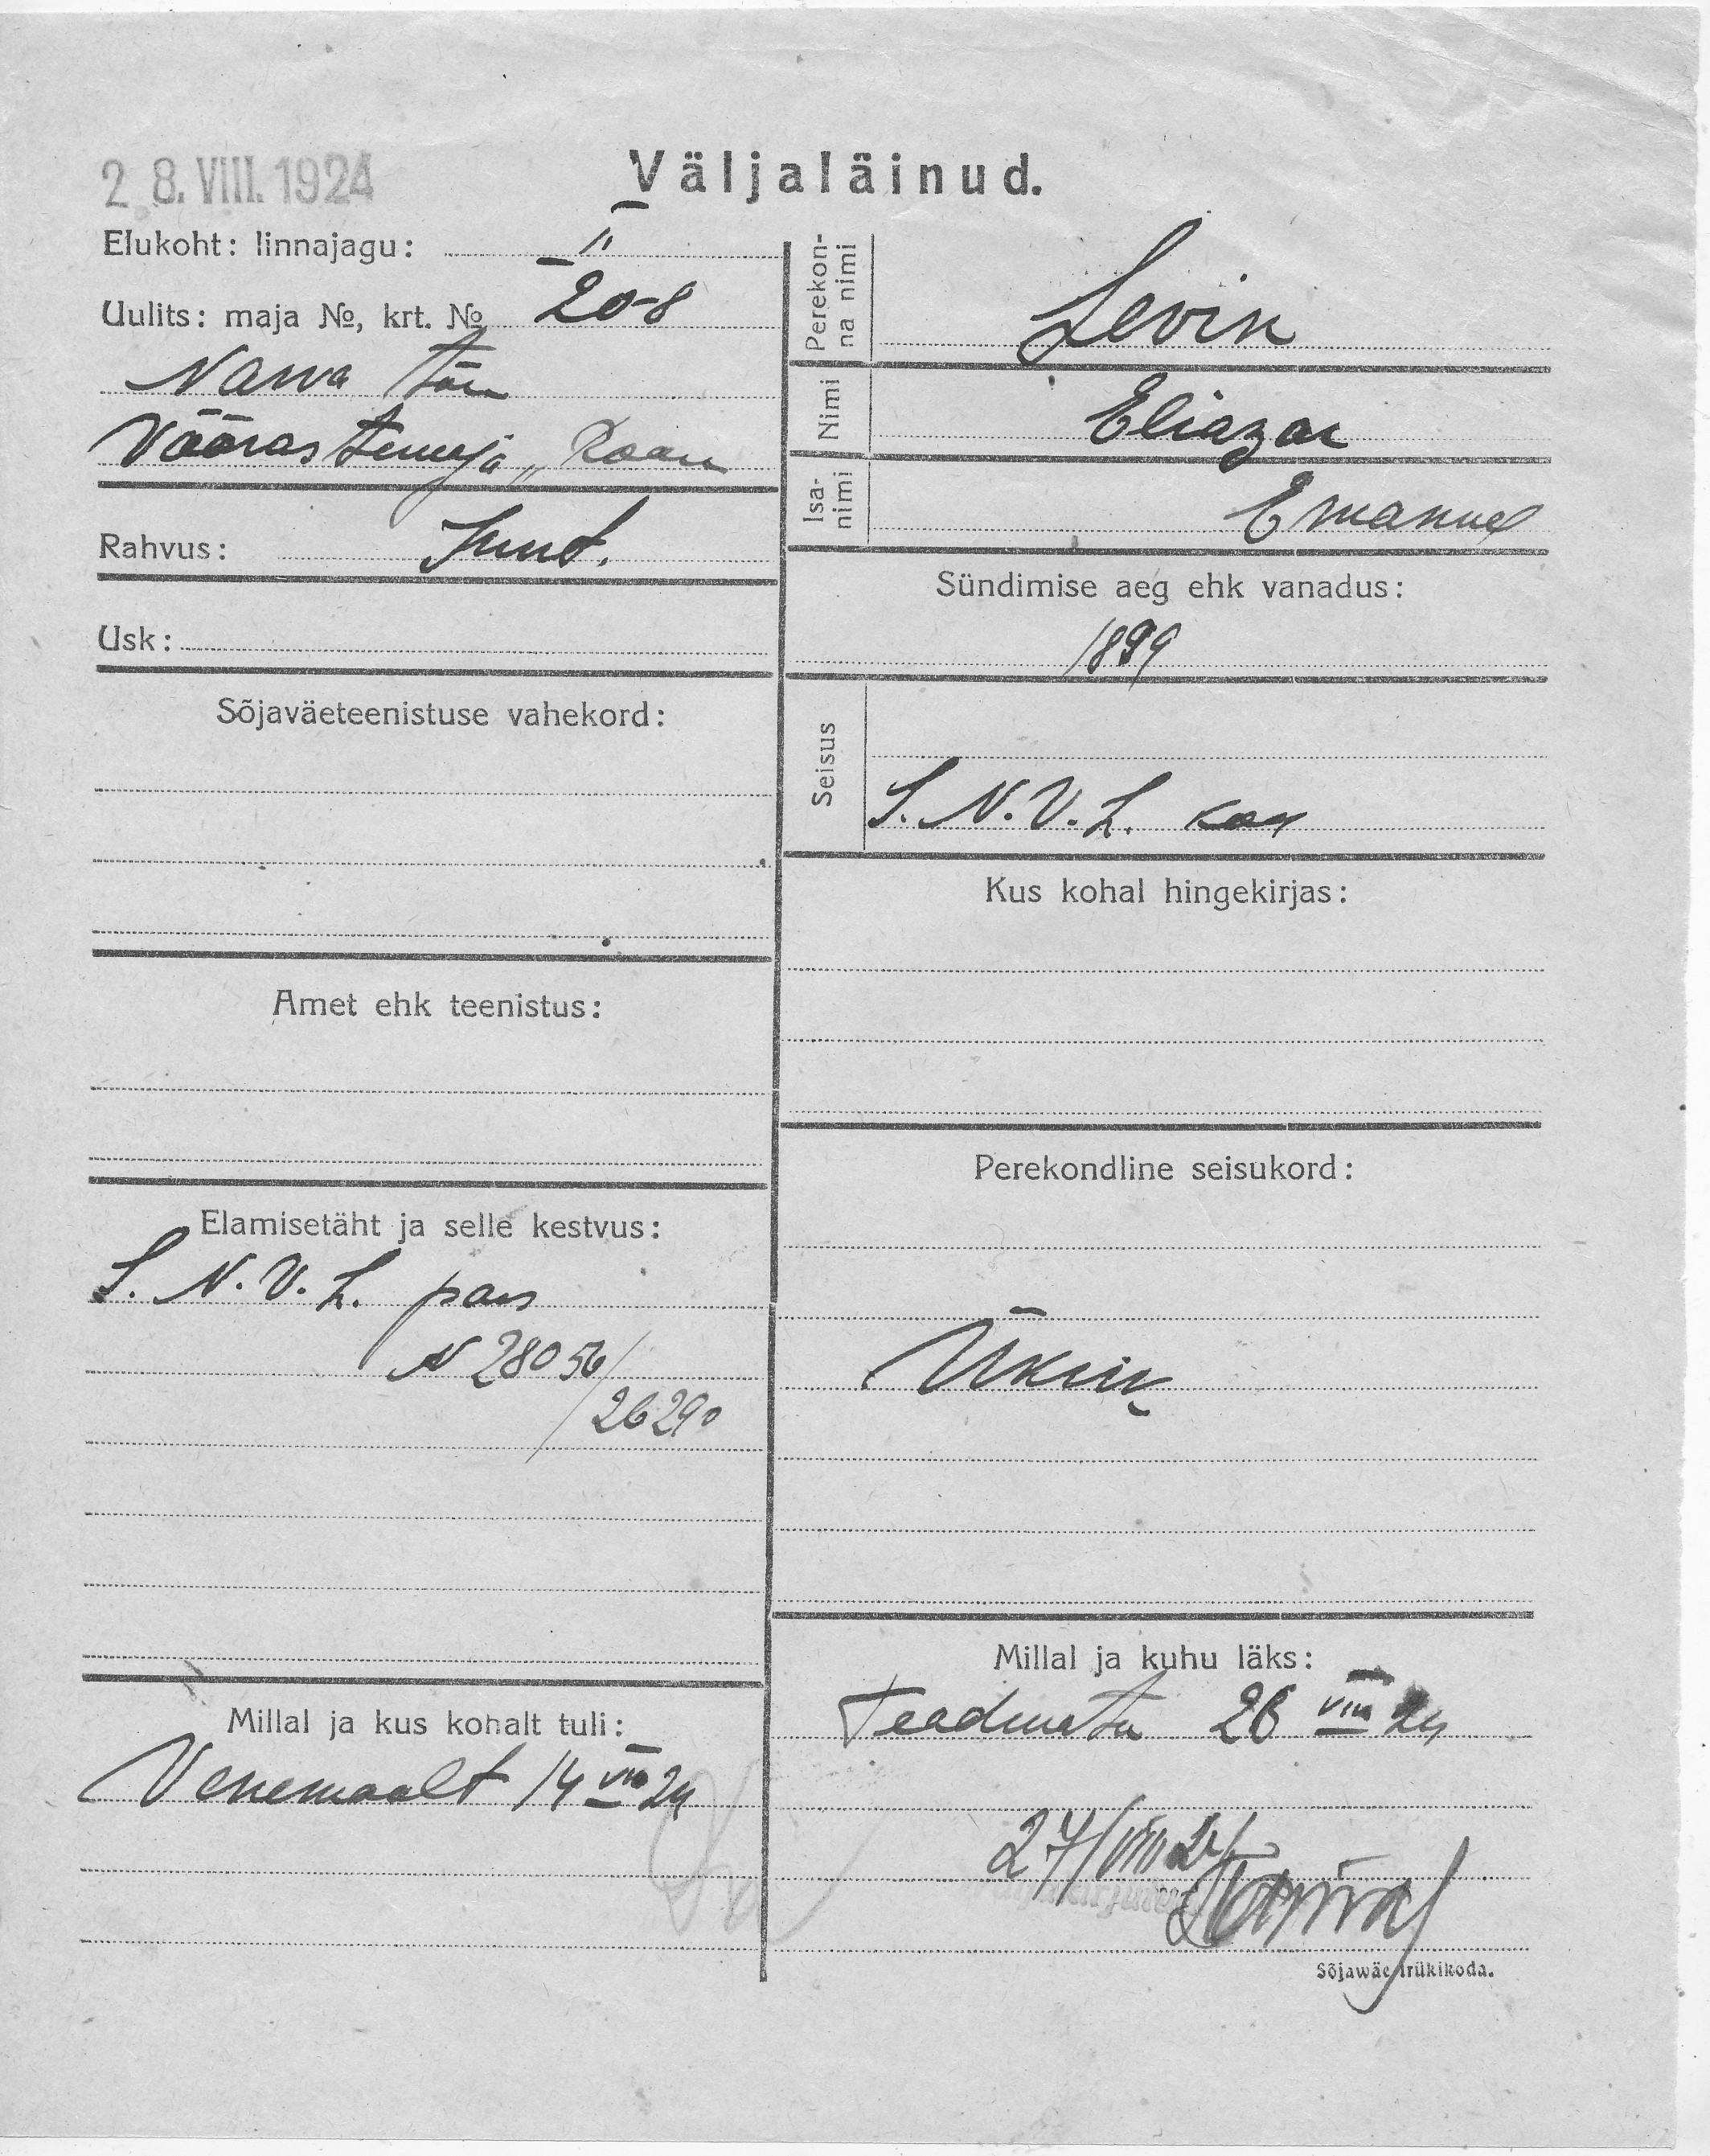 28. VIII. 1924
Väljaläinud.
Elukoht: linnajagu: II
Uulits: maja №, krt. № 20-8
Narva tän
Võõrastemaja „Roan
Rahvus: Juut.
Usk:
Sõjaväeteenistuse vahekord:
Amet ehk teenistus:
Elamisetäht ja selle kestvus:
S. N. V. L. pass
N 28056/
26290
Millal ja kus kohalt tuli:
Venemaalt 14 VIII 24
Perekon-
na nimi
Levin
Nimi
Eliazar
Isa-
nimi
Emanuel
Sündimise aeg ehk vanadus:
1899
Seisus
S. N. V. L. kod
Kus kohal hingekirjas:
Perekondline seisukord:
Üksik
Millal ja kuhu läks:
Teadmata 26 VIII 24
27/VIII 24
Sõjawäe trükikoda.